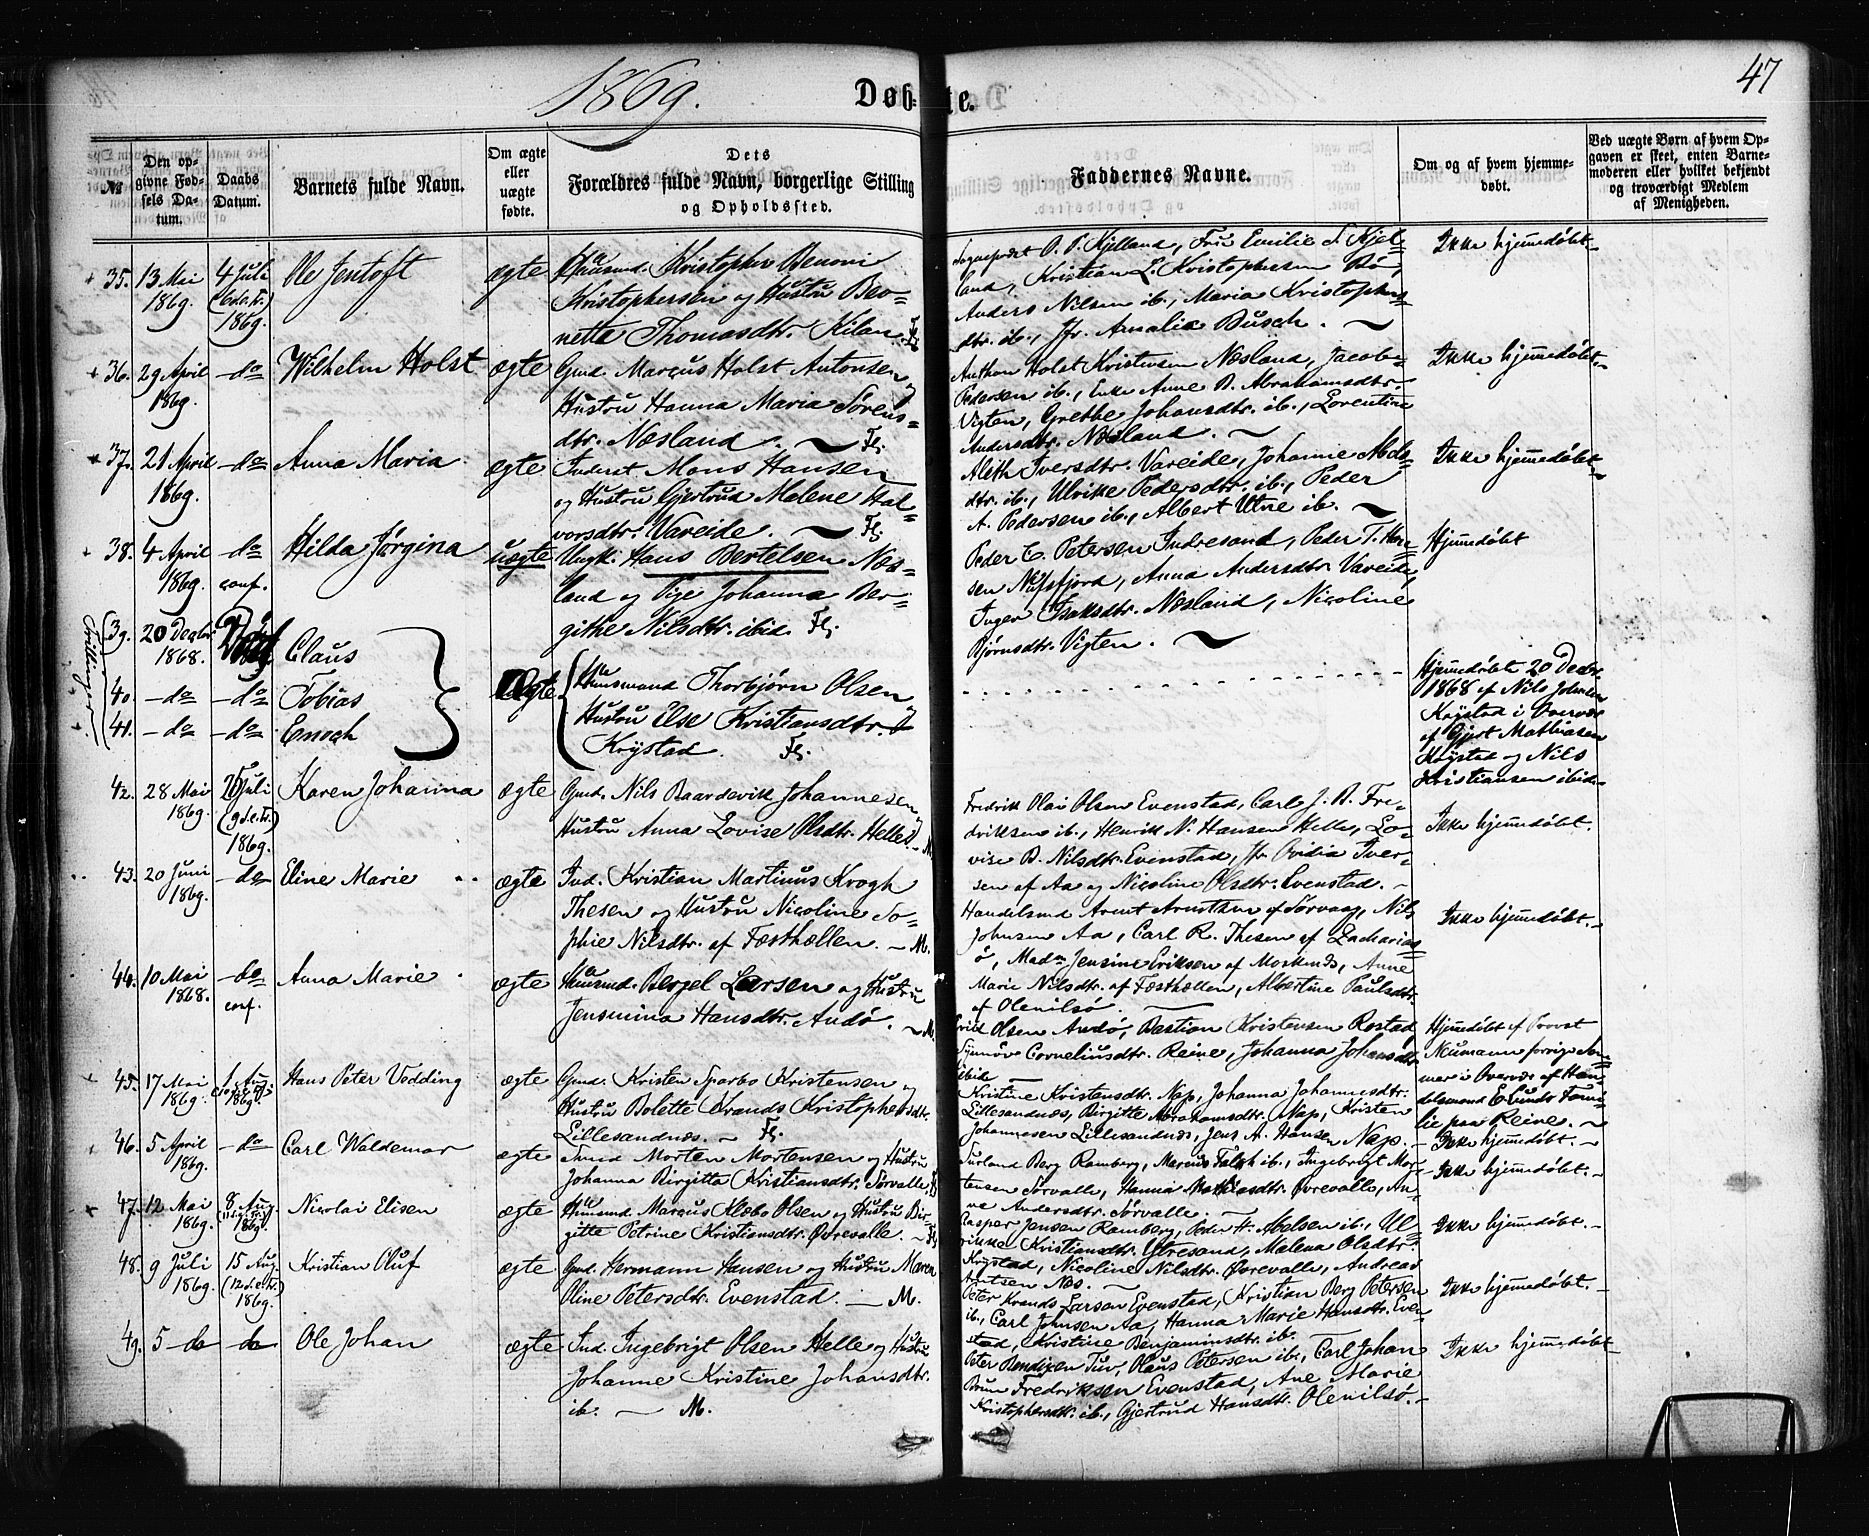 1869.
Døbte.
47
№
Den opgivne Fødsels Datum.
Daabs Datum.
Barnets fulde Navn.
Om ægte eller uægte fødte.
Dets Forældres fulde Navn, borgerlige Stilling og Opholdssted.
Faddernes Navne.
Om og af hvem hjemmedøbt.
Ved uægte Børn af hvem Opgaven er skeet, enten Barnemoderen eller hvilket bekjendt og troværdigt Medlem af Menigheden.
35. 13 Mai 1869. 4 Juli (6 e. Tr.) 1869. Ole Jentoft ægte Huusmd. Kristopher Benoni
Kristophersen og Hustru Beo-
netta Thomasdtr. Kilan. Fl.
Sognepræst O. S. Kjelland, Fru Emilie S. Kjel-
land, Kristian L. Kristophersen Bø,
Anders Nilsen ib., Maria Kristophers-
dtr. ib., Jfr. Amalia Busch.
Ikke hjemmedøbt
36. 29 April 1869. do Wilhelm Holst ægte Gmd. Marcus Holst Antonsen og
Hustru Hanna Maria Sørens-
dtr. Næsland. Fl.
Anthon Holst Kristensen Næsland, Jacob
Pedersen ib., Enke Anne B. Abrahamsdtr.
Vigten, Grethe Johansdtr. ib., Lorentine
Andersdtr. Næsland.
Ikke hjemmedøbt.
37. 21 April 1869. do Anna Maria ægte Inderst Mons Hansen
og Hustru Gjertrud Malene Hal-
vorsdtr. Vareide. Fl.
Aleth Iversdtr. Vareide, Johanne Mads-
dtr. ib., Ulrikke Pedersdtr. ib., Peder
A. Pedersen ib., Albert Utne ib.
Ikke hjemmedøbt
38. 4 April 1869. do conf. Hilda Jørgina uægte Ungk. Hans Bertelsen Næs-
land og Pige Johanna Ber-
githe Nilsdtr. ibid. Fl.
Peder C. Petersen Indresand, Peder T. Han-
sen Nufsfjord, Anna Andersdtr. Vareide,
Inger Isaksdtr. Næsland, Nicoline
Bjørnsdtr. Vigten.
Hjemmedøbt
Trillinger
39. 20 Decbr. 1868. Claus
40. do do Tobias
41. do do Enoch
Ægte Huusmand Thorbjørn Olsen og
Hustru Else Kristiansdtr.
Krystad. Fl.
Hjemmedøbt 20 Decbr.
1868 af Nils Johnsen
Krystad i Overvær
af Gjert Mathiasen
Krystad og Nils
Kristiansen ibid.
42. 28 Mai 1869. 25 Juli (9 s.e.Tr.) 1869. Karen Johanna ægte Gmd. Nils Baardevik Johannesen og
Hustru Anna Lovise Olsdtr. Helle. M.
Fredrik Olai Olsen Evenstad, Carl J. B. Fre-
driksen ib., Henrik N. Hansen Helle, Lo-
vise B. Nilsdtr. Evenstad, Jfr Ovidia Iver-
sen af Aa og Nicoline Olsdtr. Evenstad.
Ikke hjemmedøbt.
43. 20 Juni 1869. do Eline Marie ægte Ind. Kristian Martinus Krogh
Thesen og Hustru Nicoline So-
phie Nilsdtr. af Fæsthællen. M.
Handelsmd Arent Arntsen af Sørvaag, Nils
Johnsen Aa, Carl R. Thesen af Zacharias-
ø, Madm Jensine Eriksen af Moskenæs, Anne
Marie Nilsdtr. af Fæsthællen, Albertine Paulsdtr.
af Olenilsø.
Ikke hjemmedøbt.
44. 10 Mai 1868. do conf. Anna Marie ægte Huusmd. Bergel Larsen og Hustru
Jensmina Hansdtr. Andø. M.
Olsen Andø, Bastian Kristensen Rostad,
Synnøve Corneliusdtr. Reine, Johanna Johansdtr.
ibide
Hjemmedøbt af Provst
Neumann forrige Som-
mer i Overvær af Han-
delsmand E. Lunds Fami-
lie paa Reine.
45. 17 Mai 1869. 1 Aug. 1869. Hans Peter Vedding ægte Gmd. Kristen Sparbo Kristensen og
Hustru Bolette Brands Kristophersdtr.
Lillesandnæs. Fl.
Kristine Kristensdtr. Nap, Johanna Johannesdtr.
Lillesandnæs, Birgitte Abrahamsdtr. Nap, Kristen
Johannesen Lillesandnæs, Jens A. Hansen Nap.
Ikke hjemmedøbt.
46. 5 April 1869. do Carl Waldemar ægte Smed Morten Mortensen og Hustru
Johanna Birgitta Kristiansdtr. Sørvalle, Fl.
Berg Ramberg, Marcus Falch ib., Ingebrigt Mor-
tensen Sørvalle, Hanna Mathiasdtr. Øvrevalle, An-
ne Andersdtr. Sørvalle.
Ikke hjemmedøbt.
47. 12 Mai 1869. 8 Aug. 1869. Nicolai Elisen ægte Huusmd. Marcus Klæbo Olsen og Hustru Bir-
gitte Petrine Kristiansdtr. Øvrevalle. Fl.
Casper Jensen Ramberg, Peder H. Abelsen ib., Ul-
rikke Kristiansdtr. Ytresand, Malena Olsdtr.
Krystad, Nicoline Nilsdtr. Øvrevalle, Andreas
Antsen Næs.
Ikke hjemmedøbt.
48. 9 Juli 1869. 15 Aug. (12 s.e.Tr.) 1869. Kristian Oluf ægte Gmd. Hermann Hansen og Hustru Maren
Oline Petersdtr. Evenstad. M.
Peter Krands Larsen Evenstad, Kristian Berg Petersen
ib., Carl Johnsen Aa, Hanna Marie Hansdtr. Even-
stad, Kristine Benjaminsdtr. ib.
Ikke hjemmedøbt.
49. 5 do do Ole Johan ægte Ind. Ingebrigt Olsen Helle og Hustru
Johanne Kristine Johansdtr.
ib. M.
Peter Bendixen Tuv, Olaus Petersen ib., Carl Johan
Brun Fredriksen Evenstad, Ane Marie
Kristophersdtr. ib., Gjertrud Hansdtr. Olenilsø.
Ikke hjemmedøbt